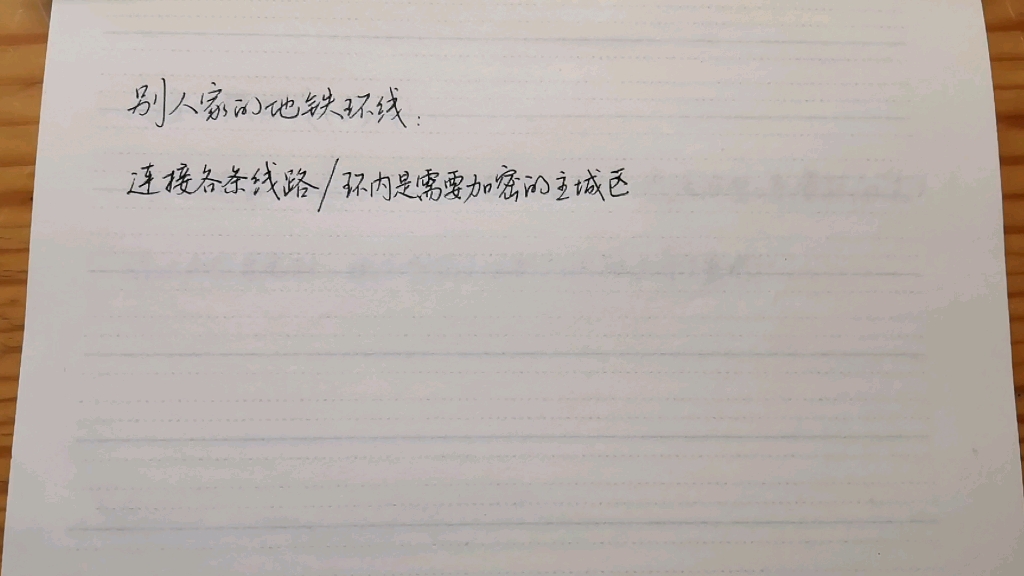 别人家的地铁环线：
连接各条线路/环内是需要加密的主城区